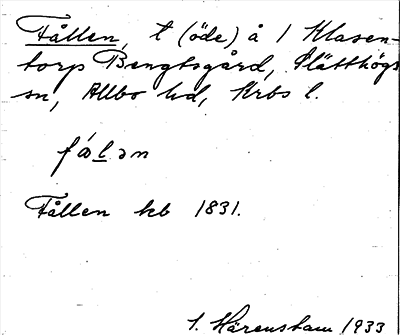 Fållen, t (öde) å 1 Klasen-
torp Bengtsgård, Slätthögs
sn, Allbo hd, Krbs l.
fålən
Fållen kb 1831.
Härenstam 1933